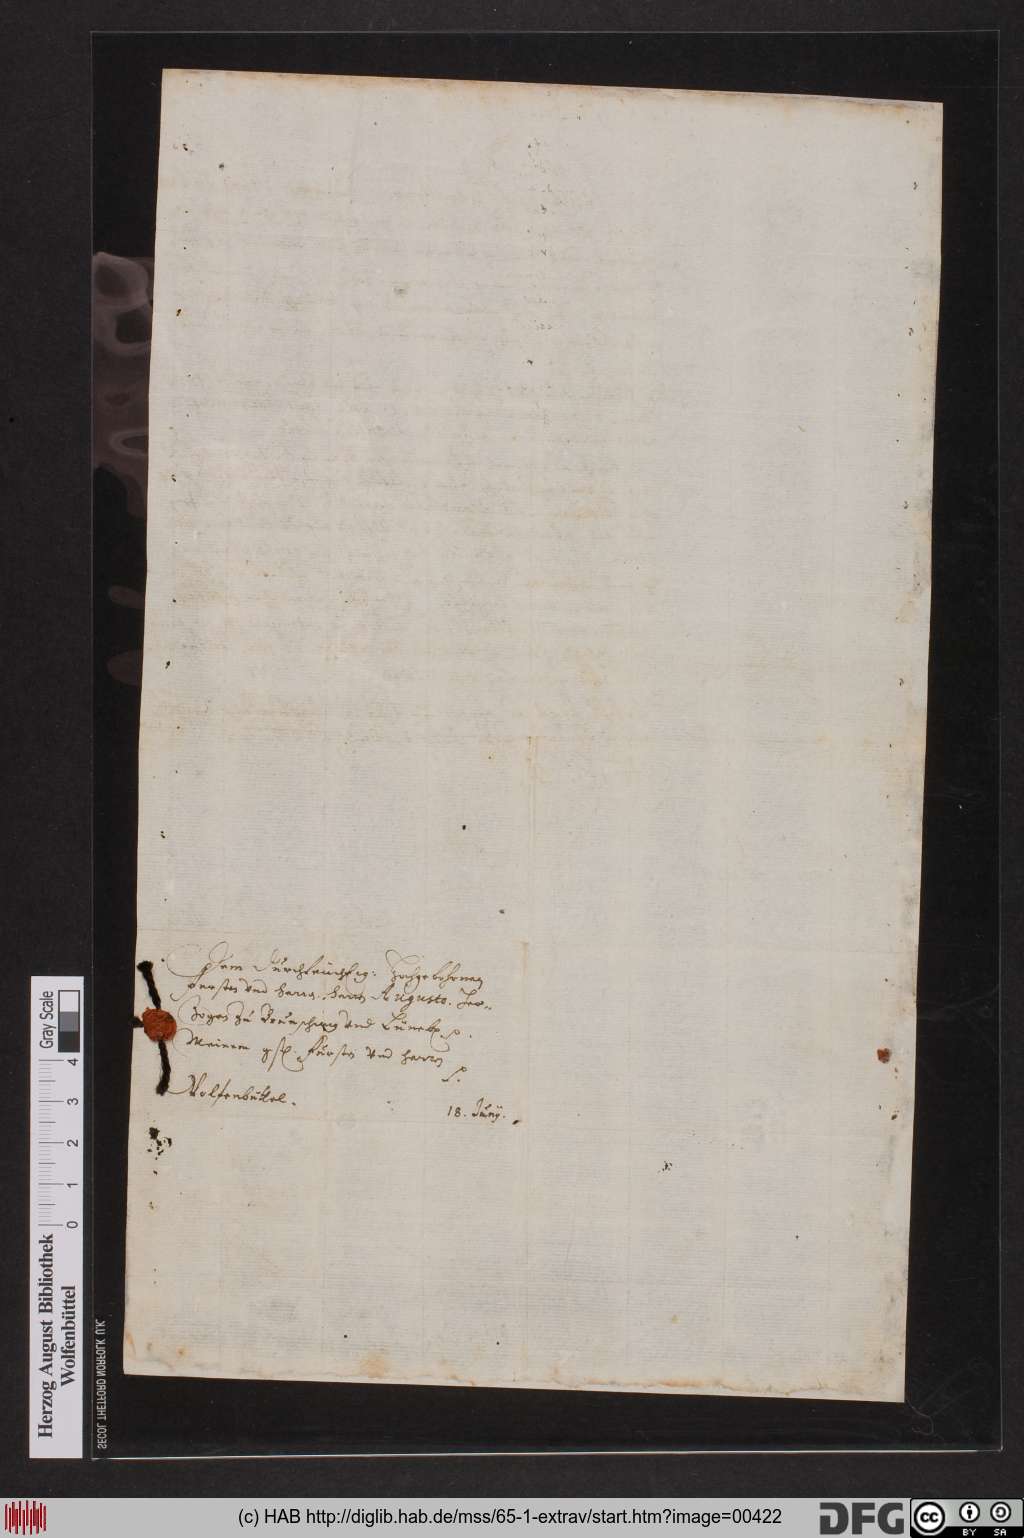 Dem Durchleuchtig: Hochgebohrnen
Fursten vnd Herrn. Herrn Augusto. Her-
zogen zu Braunschweig vnd Lüneb.
Meinem gn. Fursten vnd Herrn
Wolfenbüttel.
18. Junij.
Herzog August Bibliothek
Wolfenbüttel
0 1 2 3 4
Gray Scale
SECOL THETFORD NORFOLK U.K.
(c) HAB http://diglib.hab.de/mss/65-1-extrav/start.htm?image=00422
DFG
cc BY SA